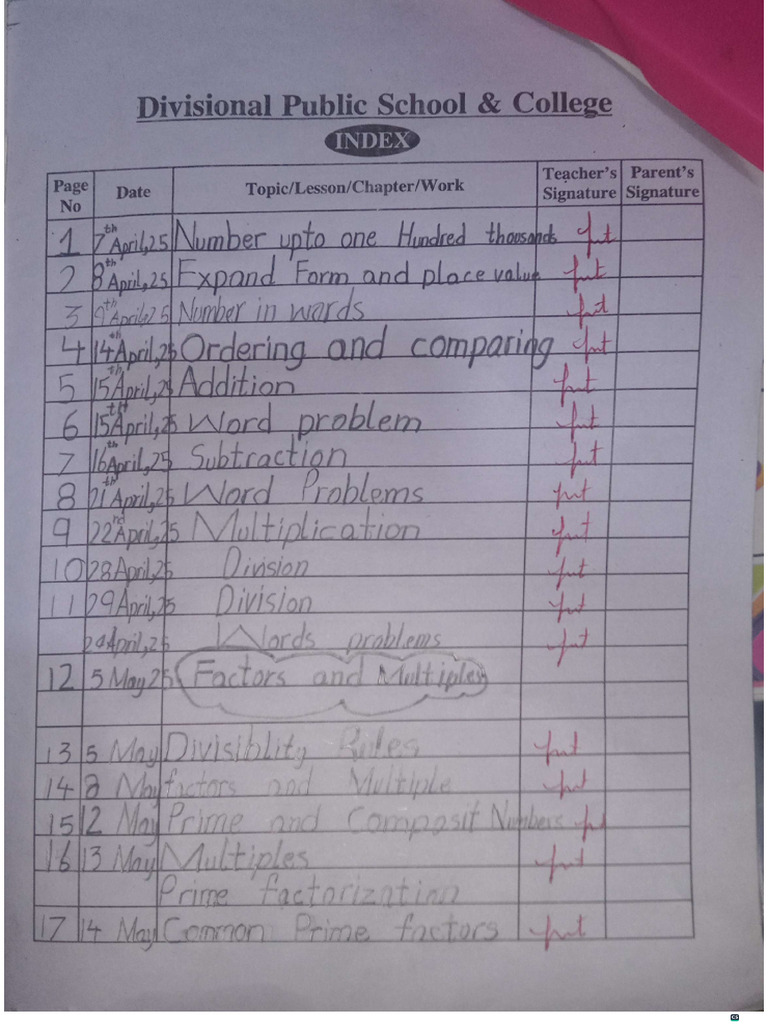 Divisional Public School & College
INDEX
Page No Date Topic/Lesson/Chapter/Work Teacher's Signature Parent's Signature
1 7th April,25 Number upto one Hundred thousands
2 8th April,25 Expand Form and place value
3 9th April,25 Number in words
4 14th April,25 Ordering and comparing
5 15th April,25 Addition
6 15th April,25 Word problem
7 16th April,25 Subtraction
8 21th April,25 Word Problems
9 22nd April,25 Multiplication
10 28 April,25 Division
11 29 April,25 Division
29 April,25 Words problems
12 5 May 25 Factors and Multiples
13 5 May Divisiblity Rules
14 8 May factors and Multiple
15 12 May Prime and Composit Numbers
16 13 May Multiples
Prime factorization
17 14 May Common Prime factors